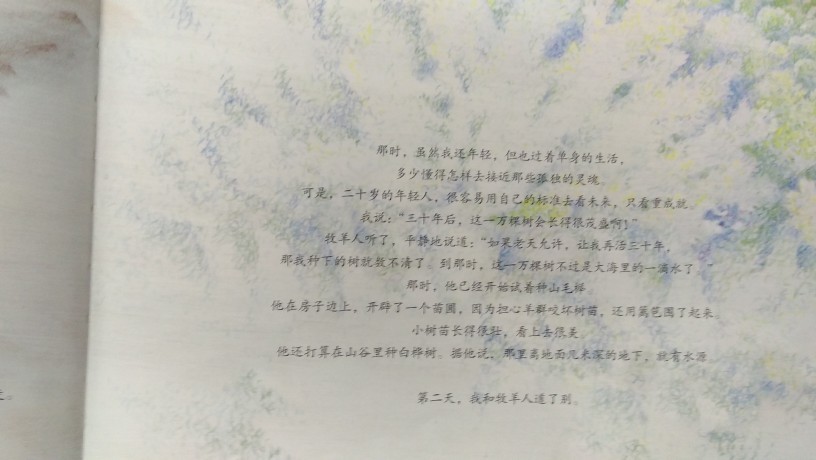 那时，虽然我还年轻，但也过着单身的生活，
多少懂得怎样去接近那些孤独的灵魂。
可是，二十岁的年轻人，很容易用自己的标准去看未来，只看重成就。
我说：“三十年后，这一万棵树会长得很茂盛啊！”
牧羊人听了，平静地说道：“如果老天允许，让我再活三十年，
那我种下的树就数不清了。到那时，这一万棵树不过是大海里的一滴水了。”
那时，他已经开始试着种山毛榉。
他在房子边上，开辟了一个苗圃，因为担心羊群咬坏树苗，还用篱笆围了起来。
小树苗长得很壮，看上去很美。
他还打算在山谷里种白桦树。据他说，那里离地面几米深的地下，就有水源。
第二天，我和牧羊人道了别。